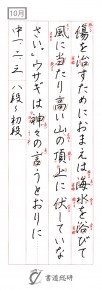 10月
傷を治すためにおまえは海水を浴びて
風に当たり高い山の頂上に伏していな
さい。ウサギは神々の言うとおりに
中一・二・三 八段〜初段
書道総研